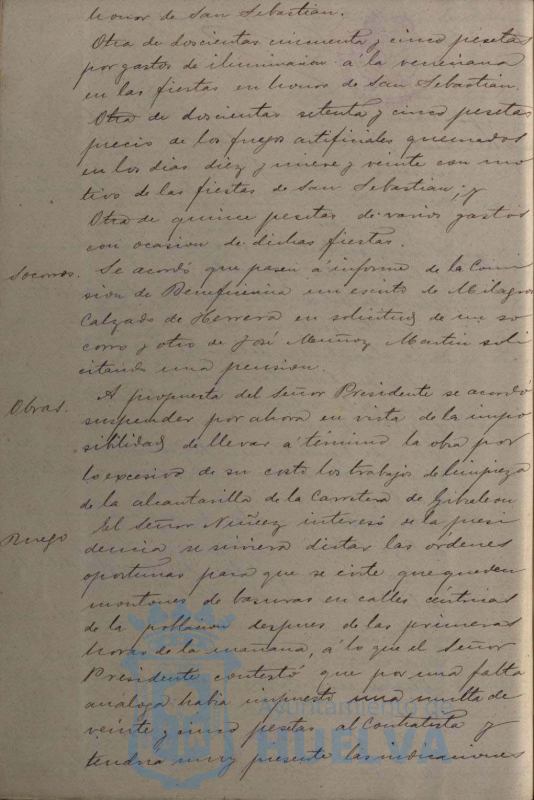 honor de San Sebastian.
Otra de doscientas cincuenta y cinco pesetas
por gastos de iluminacion á la veneciana
en las fiestas en honor de San Sebastian.
Otra de doscientas setenta y cinco pesetas
precio de los fuegos artificiales quemados
en los dias diez y nueve y veinte con mo
tivo de las fiestas de San Sebastian; y
Otra de quince pesetas de varios gastos
con ocasion de dichas fiestas.
Socorros. Se acordó que pasen á informe de la Comi
sion de Beneficencia un escrito de Milagros
Calzado de Herrera en solicitud de un so
corro y otro de José Muñoz Martin soli
citando una pension.
Obras. A propuesta del Señor Presidente se acordó
suspender por ahora en vista de la impo
sibilidad de llevar á término la obra por
lo excesivo de su costo los trabajos de limpieza
de la alcantarilla de la Carretera de Gibraleon
Ruego El Señor Nuñez interesó de la presi
dencia se sirviera dictar las ordenes
oportunas para que se evite que queden
montones de basuras en calles céntricas
de la poblacion despues de las primeras
horas de la mañana, á lo que el Señor
Presidente contestó que por una falta
análoga habia impuesto una multa de
veinte y cinco pesetas al Contratista y
tendria muy presente las indicaciones
Ayuntamiento de
HUELVA